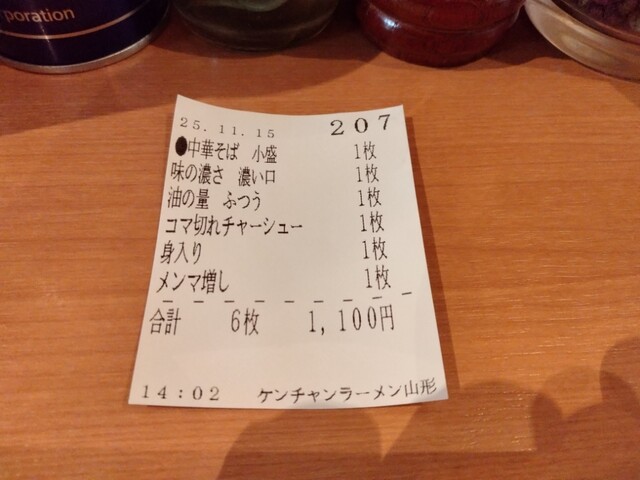 poration
25.11.15 207
●中華そば 小盛 1枚
味の濃さ 濃い口 1枚
油の量 ふつう 1枚
コマ切れチャーシュー 1枚
身入り 1枚
メンマ増し 1枚
合計 6枚 1,100円
14:02 ケンチャンラーメン山形